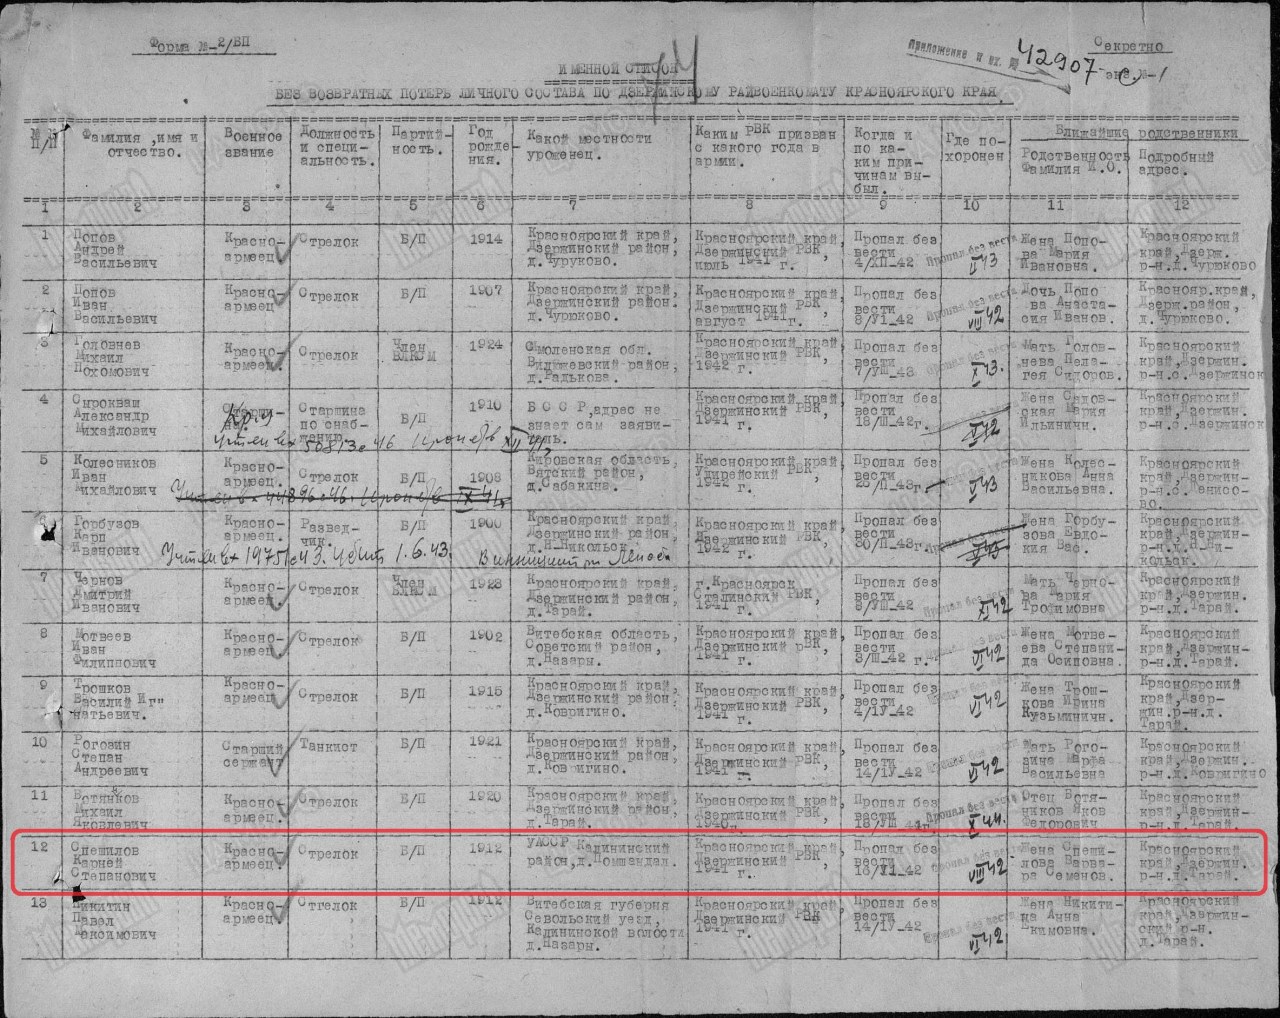 Форма №-2/БП
Секретно
Приложение к вх. №
42907 с
экз.№-1
74
ИМЕННОЙ СПИСОК
БЕЗ ВОЗВРАТНЫХ ПОТЕРЬ ЛИЧНОГО СОСТАВА ПО ДЗЕРЖИНСКОМУ РАЙВОЕНКОМАТУ КРАСНОЯРСКОГО КРАЯ.
№№ П/П | Фамилия ,имя и отчество. | Военное звание | Должность и специальность. | Партийность. | Год рождения. | Какой местности уроженец. | Каким РВК призван с какого года в армии. | Когда и по каким причинам выбыл. | Где похоронен | Ближайшие родственники
Родственность Фамилия И.О. | Подробный адрес.
1 2 3 4 5 6 7 8 9 10 11 12
1 | Попов Андрей Васильевич | Красно-армеец | Стрелок | Б/П | 1914 | Красноярский край, Дзержинский район, д.Чуруково. | Красноярский край, Дзержинский РВК, июль 1941 г. | Пропал без вести 4/ХП-42 | Пропал без вести II 43 | Жена Попова Мария Ивановна. | Красноярский край,Дзерж. р-н.д.Чурюково
2 | Попов Иван Васильевич | Красно-армеец | Стрелок | Б/П | 1907 | Красноярский край, Дзержинский район. д.Чурюково. | Красноярский край, Дзержинский РВК, август 1941г. | Пропал без вести 8/У1-42 | Пропал без вести VIII 42 | Дочь Попова Анастасия Иванов. | Краснояр.край, Дзерж.район, д.Чурюково.
3 | Головнев Михаил Похомович | Красно-армеец. | Стрелок | Член ВЛКСМ | 1924 | Смоленская обл. | Красноярский край, Дзержинский РВК, 1942 г. | Пропал без вести 7/УШ-43 | Пропал без вести X 43. | Мать Головнева Пелагея Сидоров. | Красноярский край,Дзержин. р-н.с.Дзержинск
4 | Сыроквац Александр Михайлович | Старшина по снабжению | Б/П | 1910 | Б С С Р,адрес не знает сам заявитель. | Красноярский край, Дзержинский РВК, 1941 г. | Пропал без вести 18/Ш-42г. | V 42 | Жена Садовская Мария Ильинич. | Красноярский край,Дзержин. р-н.с.Дзержинск
Учтен вх 50813с 46
5 | Колесников Иван Михайлович | Красно-армеец. | Стрелок | Б/П | 1908 | Кировская область, Вятский район, д.Сабакина. | Красноярский край, РВК, 1942 г. | Пропал без вести | VI 43 | Жена Колесникова Анна Васильевна. | Красноярский край,Дзержин-
6 | Горбузов Карп Иванович | Красно-армеец. | Разведчик. | Б/П | 1900 | Красноярский край, Дзержинский район, д.Н-Никольск. | Красноярский край, Дзержинский РВК, 1942 г. | Пропал без вести | Жена Горбузова Евдокия Вас. | Красноярский край,Дзержин- р-н.д.Н.Никольск.
Учтен вх 19751с 43. Убит 1.6.43.
7 | Чернов Дмитрий Иванович | Красно-армеец. | Стрелок | Член ВЛКСМ | 1923 | Красноярский край, Дзержинский район, д.Тарай. | г.Красноярск Сталинский РВК, 1941 г. | Пропал без вести 8/УШ-42 | Пропал без вести XI 42 | Мать Чернова Мария Трофимовна | Красноярский край,Дзержин. р-н.д.Тарай.
8 | Мотвеев Иван Филиппович | Красно-армеец. | Стрелок | Б/П | 1902 | Витебская область, Советский район, д.Назары. | Красноярский край, Дзержинский рВК, 1941 г. | Пропал без вести 3/Ш-42 г. | VI 42 | Жена Мотвеева Степанида Осиповна. | Красноярский край,Дзержин- р-н.д.Тарай.
9 | Трошков Василий Иг" натьевич. | Красно-армеец | Стрелок | Б/П | 1915 | Красноярский край, Дзержинский район д.Ковригино. | Красноярский край, Дзержинский РВК, 1941 г. | Пропал без вести 4/1У-42 | VI 42 | Жена Трошкова Ирина Кузьминичн. | Красноярский край,Дзержин.р-н.д. Тарай.
10 | Рогозин Степан Андреевич | Старший сержант | Танкист | Б/П | 1921 | Красноярский край, Дзержинский район, д.Ковригино. | Красноярский край, Дзержинский РВК, 1941 г. | Пропал без вести 14/1У-42 | VI 42 | Мать Рогозина Марфа Васильевна | Красноярский край,Дзержин. р-н.д.Ковригино
11 | Вотянков Михаил Яковлевич | Красно-армеец. | Стрелок | Б/П | 1920 | Красноярский край, Дзержинский район, д.Тарай. | Красноярский край, Дзержинский РВК, 1940г. | Пропал без вести | Пропал без вести X 44. | Отец Вотянников Яков Федорович | Красноярский край,Дзержин- р-н.д.Тарай.
12 | Спешилов Карней Степанович | Красно-армеец. | Стрелок | Б/П | 1912 | УАССР Калининский район,д.Помшандал. | Красноярский край, Дзержинский РВК, 1941г. | Пропал без вести 16/У1-42 | Пропал без вести VIII 42 | Жена Спешилова Варвара Семенов. | Красноярский край,Дзержин. р-н.д.Тарай.
13 | Никитин Павел Максимович | Красно-армеец. | Стгелок | Б/П | 1912 | Витебская губерня Севольский уезд, Калининской волости д.Назары. | Красноярский край, Дзержинский РВК 1941г. | Пропал без вести 14/1У-42 | Пропал без вести VI 42 | Жена Никитина Анна Екимовна. | Красноярский край,Дзержинский р-н. д.Тарай.